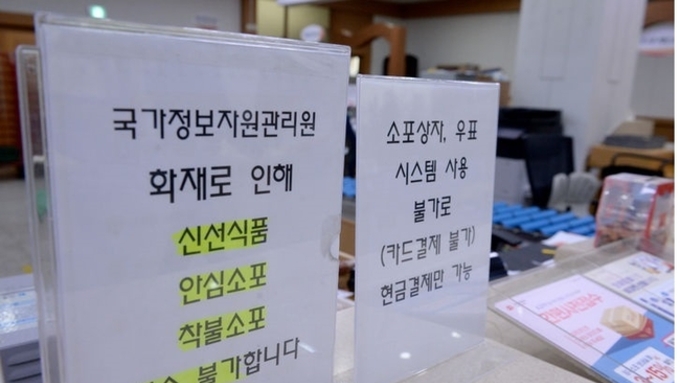 국가정보자원관리원
화재로 인해
신선식품
안심소포
착불소포
불가합니다
소포상자, 우표
시스템 사용
불가로
(카드결제 불가)
현금결제만 가능